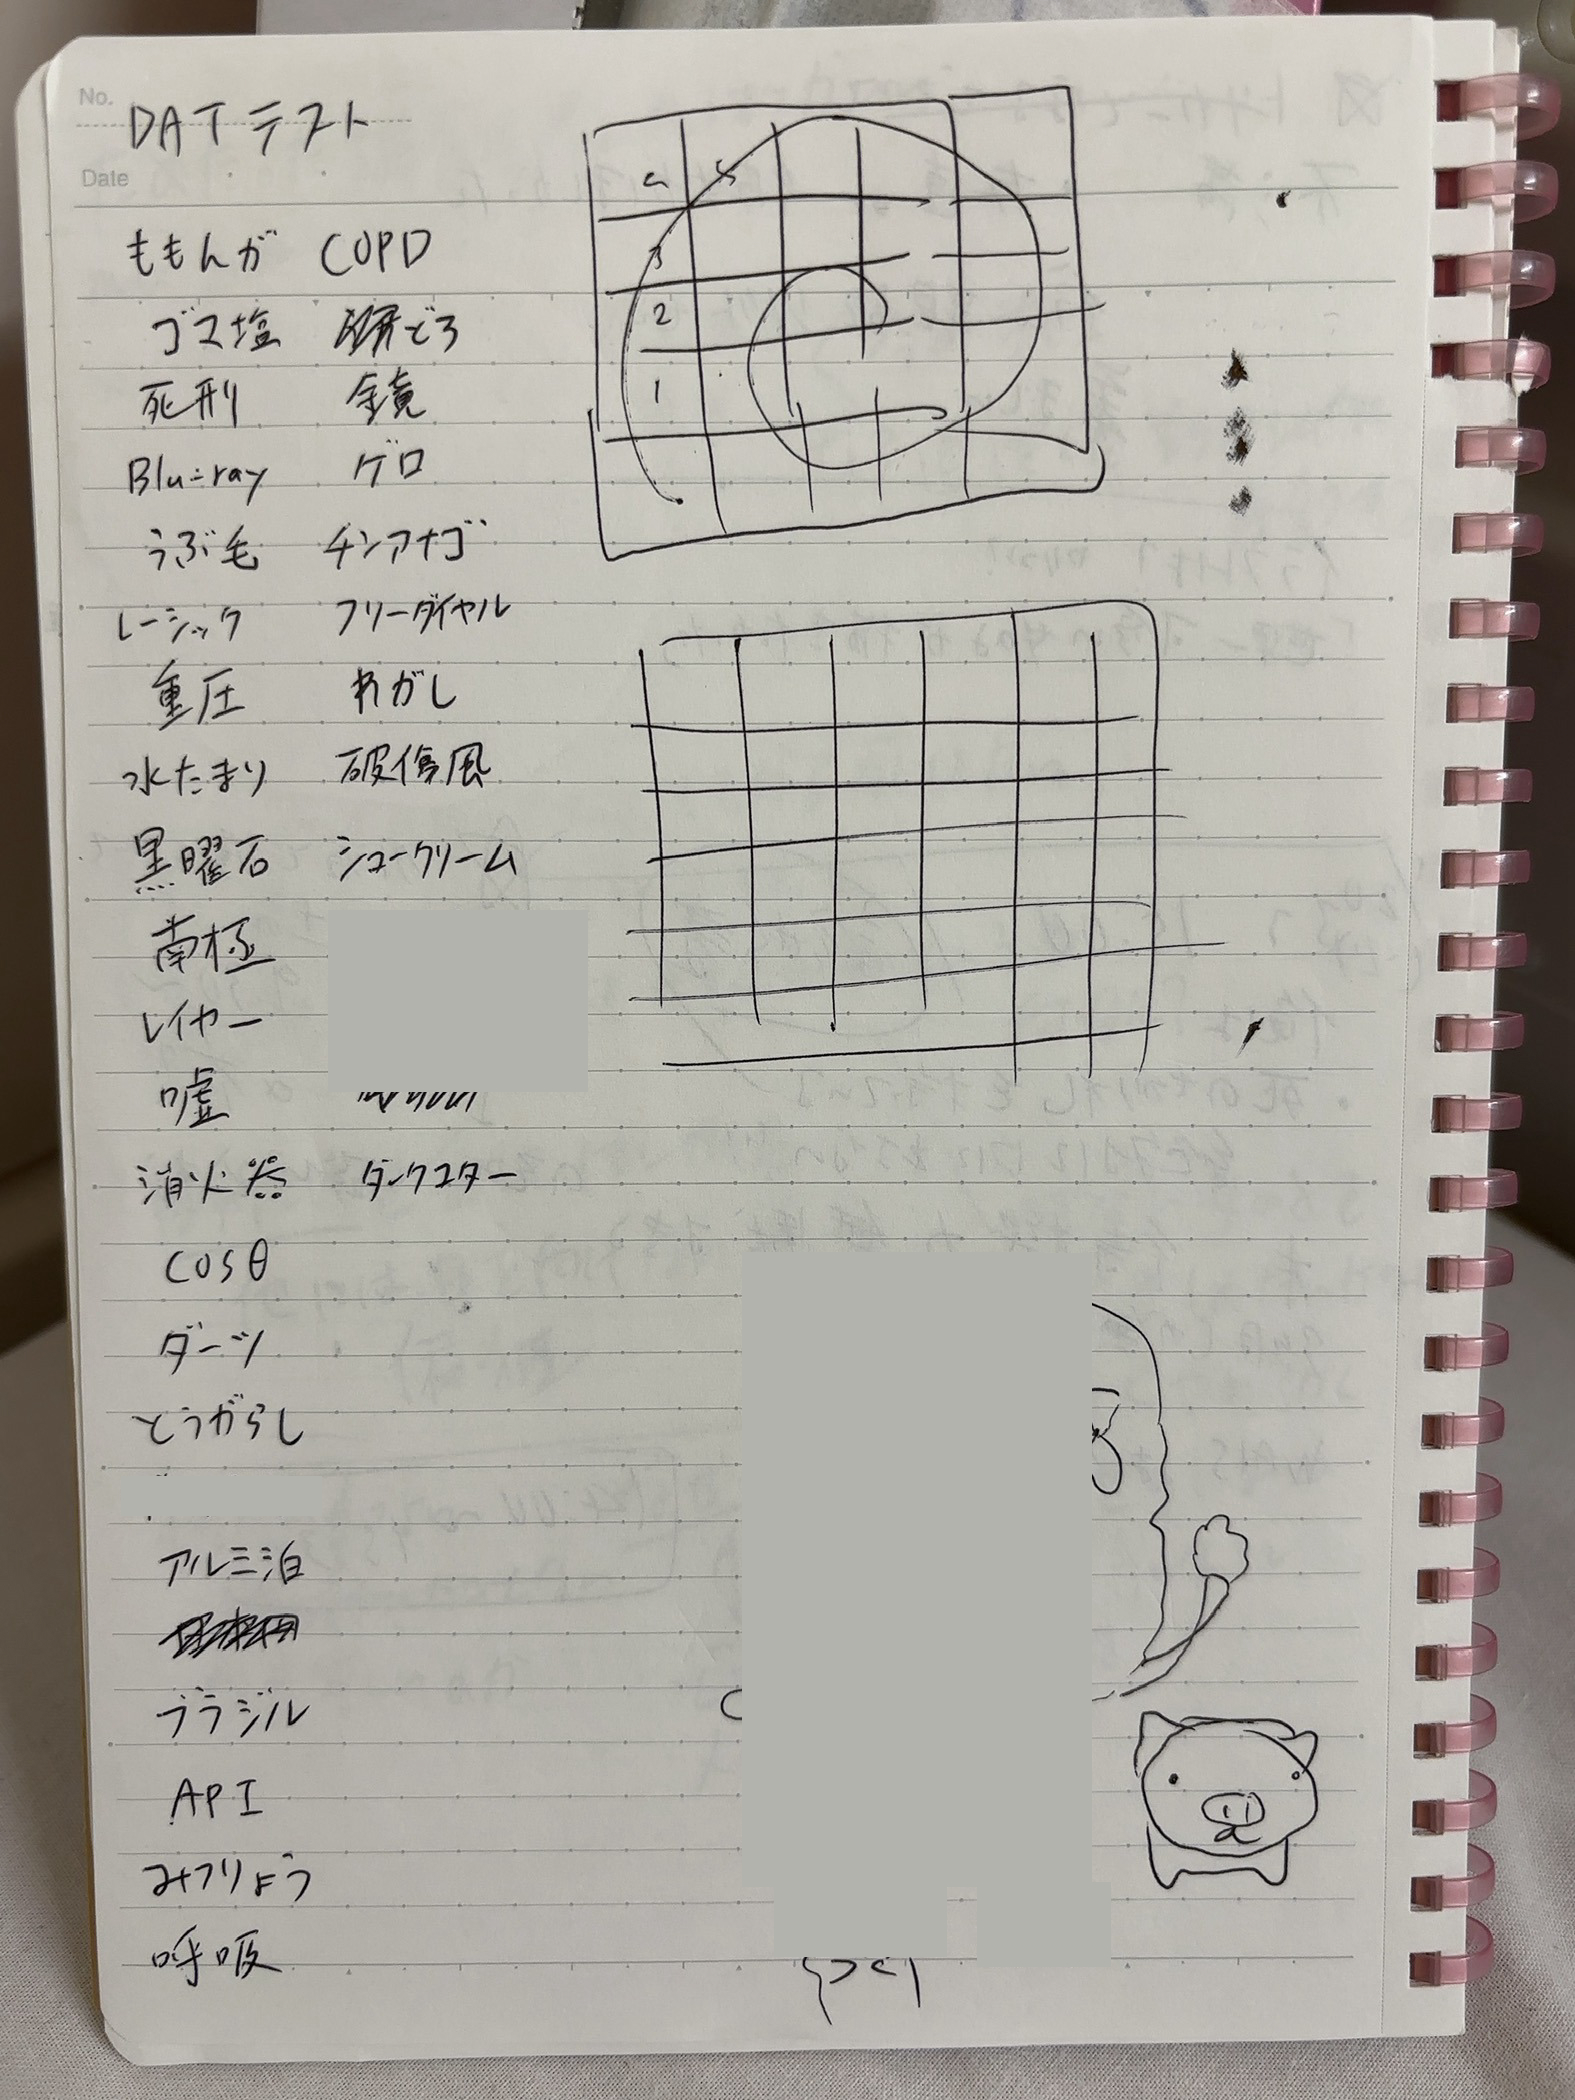 No.
DATテスト
Date
ももんが COPD
ゴマ塩
死刑 鏡
Blu-ray ゲロ
うぶ毛 チンアナゴ
レーシック フリーダイヤル
重圧
水たまり 破傷風
黒曜石 シュークリーム
南極
レイヤー
嘘
消火器
cosθ
ダーツ
とうがらし
アルミ泊
ブラジル
API
みつりょう
呼吸
3
2
1